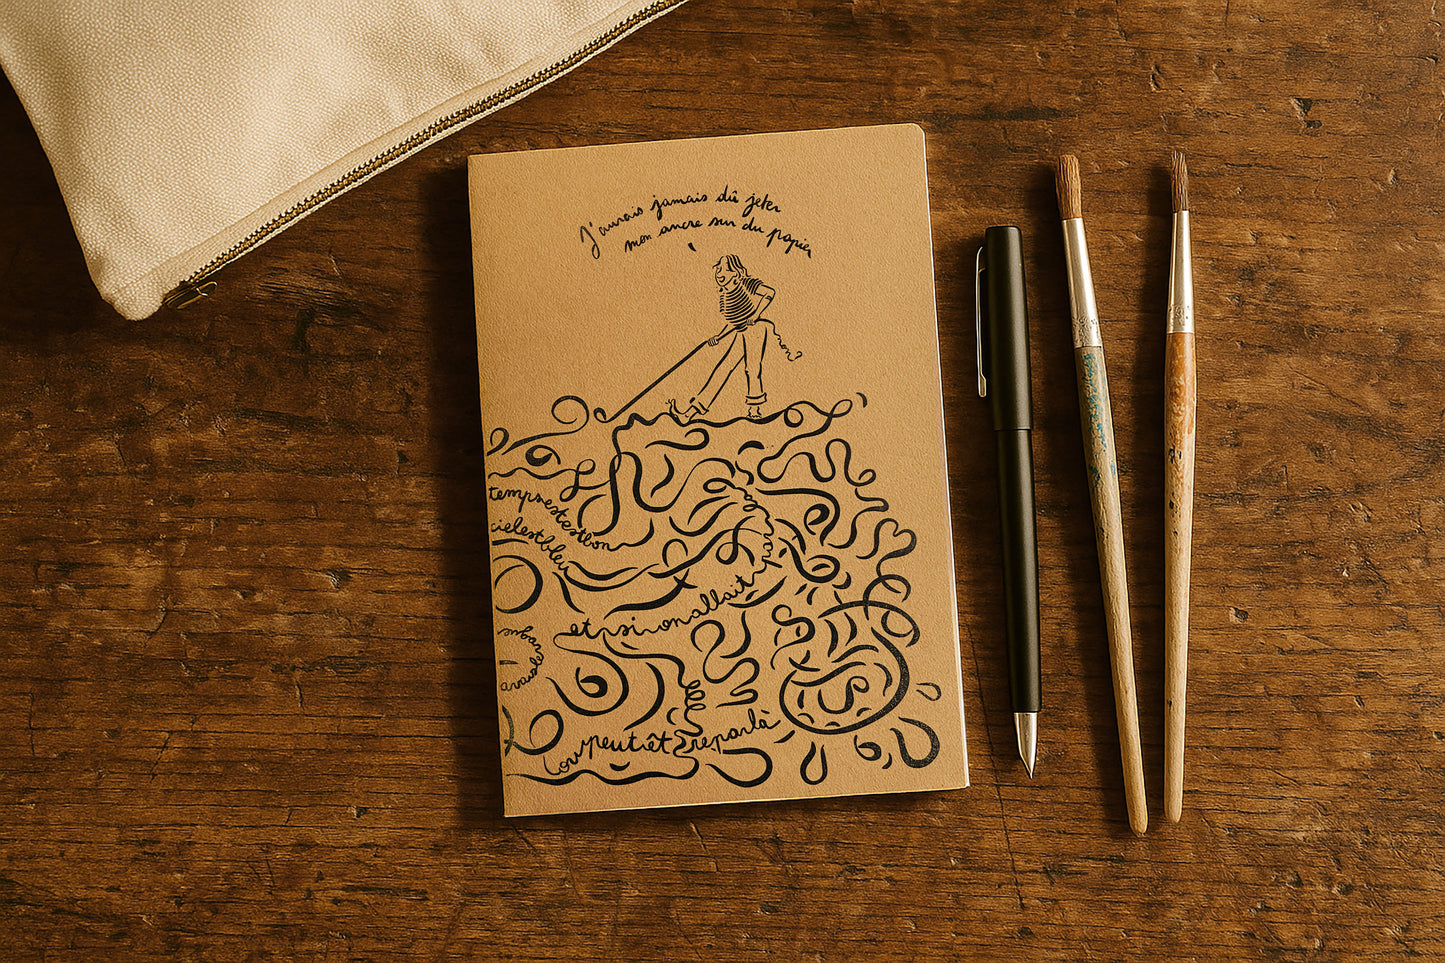 J'aurais jamais dû jeter
mon ancre sur du papier
non?
tempsestestbon
cielestbleu
etsionallait
par
peutêtreparlà